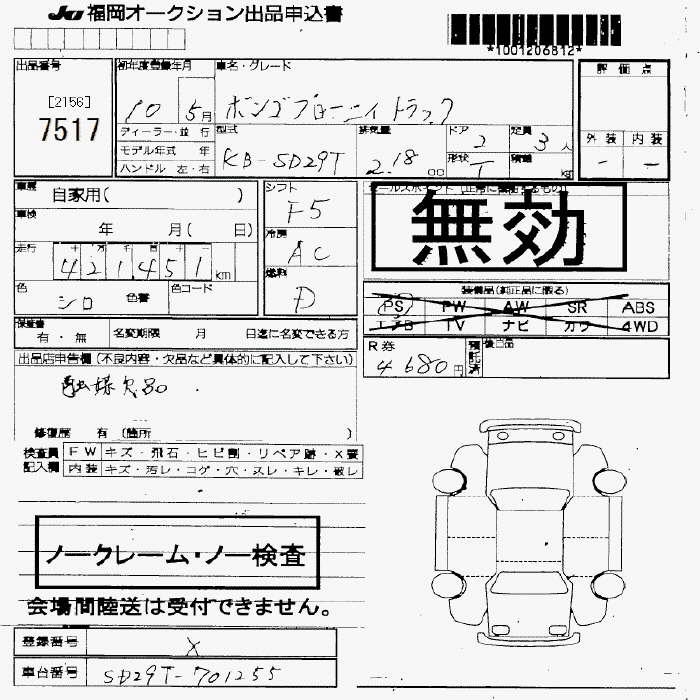 JU 福岡オークション出品申込書
*1001206812*
出品番号
[2156]
7517
初年度登録年月
10 5月
車名・グレード
ボンゴブローニィトラック
評価点
外装 内装
- -
ディーラー・並行
モデル年式 年
ハンドル 左・右
型式
KB-SD29T
排気量
2.18 00
ドア
2
定員
3人
形状
T
積載
kg
車歴
自家用( )
車検
年 月( 日)
走行
十 万 千 百 十 一
421,451 km
色
シロ 色替
色コード
シフト
F5
冷房
AC
燃料
D
セールスポイント(正常に機能するもの)
無効
装備品(純正品に限る)
PS PW AW SR ABS
エアB TV ナビ カワ 4WD
保証書
有・無
名変期限 月 日迄に名変できる方
R券
4680円
預託済
後日品
出品店申告欄(不良内容・欠品など具体的に記入して下さい)
修復歴 有(箇所 )
検査員記入欄
FW キズ・飛石・ヒビ割・リペア跡・X要
内装 キズ・汚レ・コゲ・穴・スレ・キレ・破レ
ノークレーム・ノー検査
会場間陸送は受付できません。
登録番号
X
車台番号
SD29T-701255